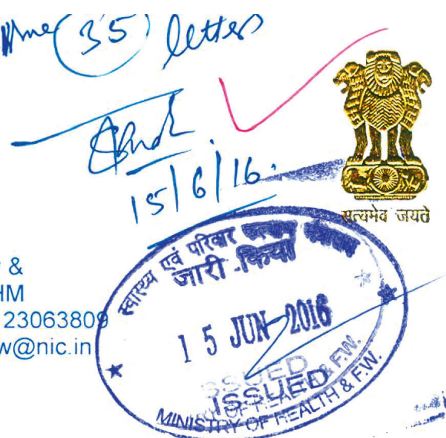 35 letters
15/6/16.
सत्यमेव जयते
&
HM
23063809
w@nic.in
स्वास्थ्य एवं परिवार
जारी किया
15 JUN 2016
ISSUED
ISSUED
MINISTRY OF HEALTH & F.W.